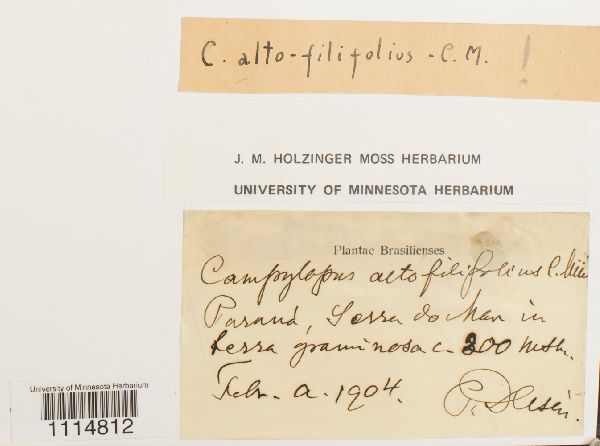 C. alto-filifolius - C. M. !
J. M. HOLZINGER MOSS HERBARIUM
UNIVERSITY OF MINNESOTA HERBARIUM
Plantae Brasilienses
Campylopus alto filifolius C. Müll
Paraná, Serra do Mar in
terra graminosa c. 200 metr.
Febr. a. 1904.
P. Dusén.
University of Minnesota Herbarium
1114812